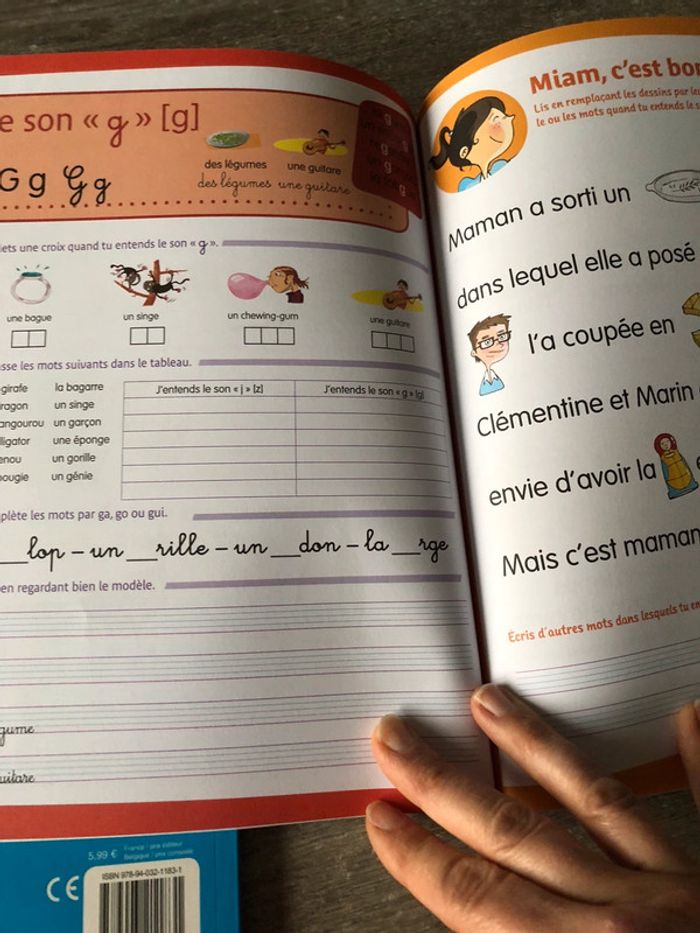 e son « g » [g]
G g G g
des légumes
une guitare
des légumes une guitare
ets une croix quand tu entends le son « g ».
une bague
un singe
un chewing-gum
une guitare
sse les mots suivants dans le tableau.
girafe
la bagarre
ragon
un singe
angourou
un garçon
lligator
une éponge
enou
un gorille
ougie
un génie
J'entends le son « j » [z]
J'entends le son « g » [g]
plète les mots par ga, go ou gui.
__lop – un __rille – un __don – la __rge
en regardant bien le modèle.
gume
uitare
Miam, c'est bon
Lis en remplaçant les dessins par le
le ou les mots quand tu entends le s
Maman a sorti un
dans lequel elle a posé
l'a coupée en
Clémentine et Marin
envie d'avoir la
Mais c'est maman
Écris d'autres mots dans lesquels tu en
5,99 €
France : prix éditeur
Belgique : prix conseillé
CE
ISBN 978-94-032-1183-1